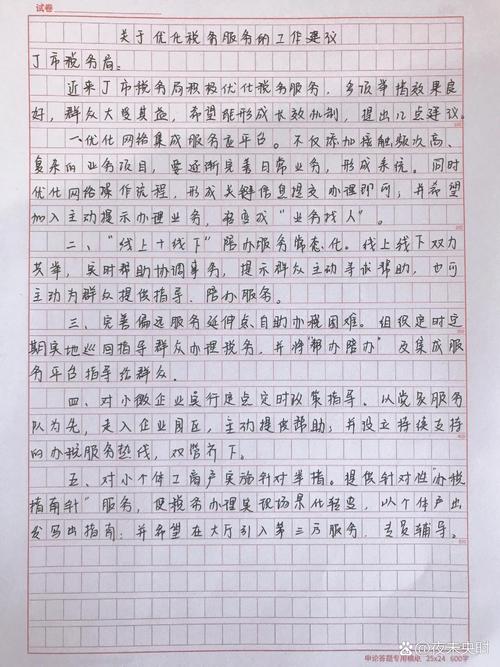 试卷
关于优化税务服务的工作建议
丁市税务局:
近来丁市税务局积极优化税务服务,多项举措效果良
好,群众大受其益,希望能形成长效机制,提出以下几点建议。
一、优化网络集成服务云平台。不仅添加接触频次高、
复杂的业务项目,要逐渐完善日常业务,形成系统。同时
优化网络操作流程,形成关键信息提交办理即可;并希望
加入主动提示办理业务,转变成“业务找人”。
二、“线上+线下”陪办服务常态化。线上线下双力
共举,实时帮助协调事务,提示群众主动寻求帮助,也可
主动为群众提供指导、陪办服务。
三、完善偏远服务延伸点自助办税困难。组织定时定
期实地巡回指导群众办理税务,并将“帮办陪办”及集成服
务平台指导给群众。
四、对小微企业实行定点定时政策指导。以党员服务
队为先,走入企业园区,主动提供帮助;并设立持续支持
的办税服务热线,双管齐下。
五、对小个体工商户实施针对举措。提供针对性“办税
指南针”服务,使税务办理实现场景化转变,以个体户出
发写出指南;并希望在大厅引入第三方服务,专员辅导。
申论答题专用稿纸 25x24 600字
@夜未央时